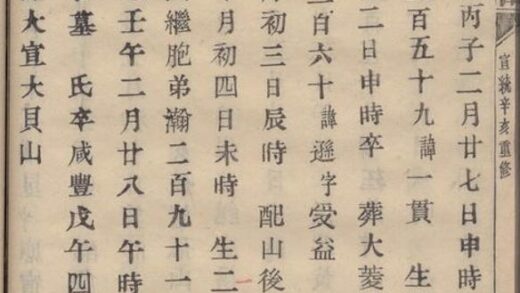 宣統辛亥重修
丙子二月廿七日申時
百五十九諱一貫 生
二日申時卒 葬大菱
百六十諱遜字受益
初三日辰時 配山後
月初四日未時 生二
繼胞弟瀚二百九十一
壬午二月廿八日午時
墓 氏卒咸豐戊午四
大宜大貝山